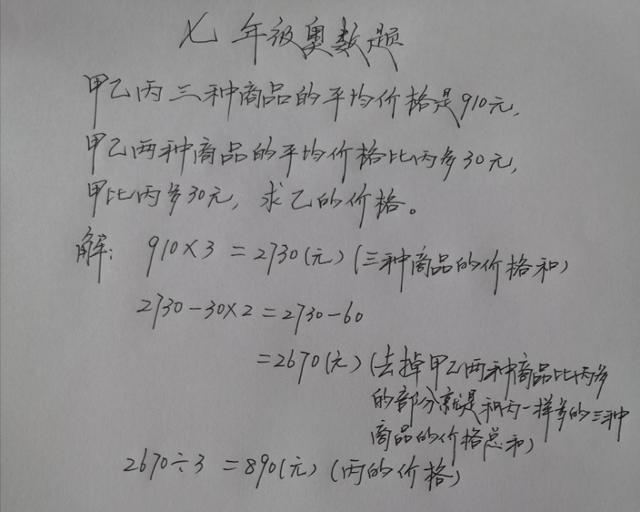 七年级奥数题
甲乙丙三种商品的平均价格是910元,
甲乙两种商品的平均价格比丙多30元,
甲比丙多30元, 求乙的价格。
解: 910×3=2730(元)(三种商品的价格和)
2730-30×2=2730-60
=2670(元)(去掉甲乙两种商品比丙多
的部分就是和丙一样多的三种
商品的价格总和)
2670÷3=890(元)(丙的价格)